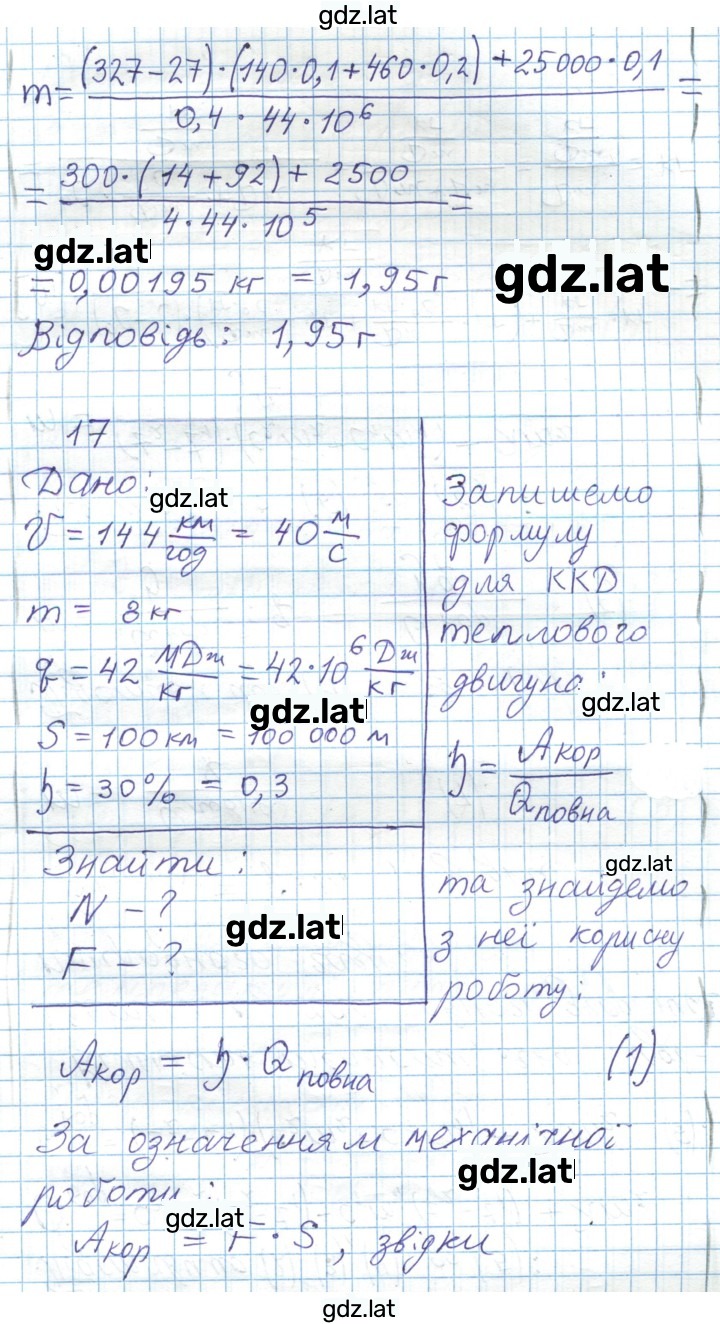 gdz.lat
m = (327-27)·(140·0,1+460·0,2)+25000·0,1 / 0,4·44·10⁶ =
= 300·(14+92)+2500 / 4·44·10⁵ =
gdz.lat
= 0,00195 кг = 1,95 г
gdz.lat
Відповідь: 1,95 г
17
Дано:
gdz.lat
V = 144 км/год = 40 м/с
m = 8 кг
q = 42 МДж/кг = 42·10⁶ Дж/кг
gdz.lat
S = 100 км = 100 000 м
η = 30% = 0,3
Знайти:
N - ?
gdz.lat
F - ?
Запишемо
формулу
для ККД
теплового
двигуна:
gdz.lat
η = Aкор / Qповна
gdz.lat
та знайдемо
з неї корисну
роботу:
Aкор = η · Qповна (1)
За означенням механічної
gdz.lat
роботи:
gdz.lat
Aкор = F · S, звідки
gdz.lat